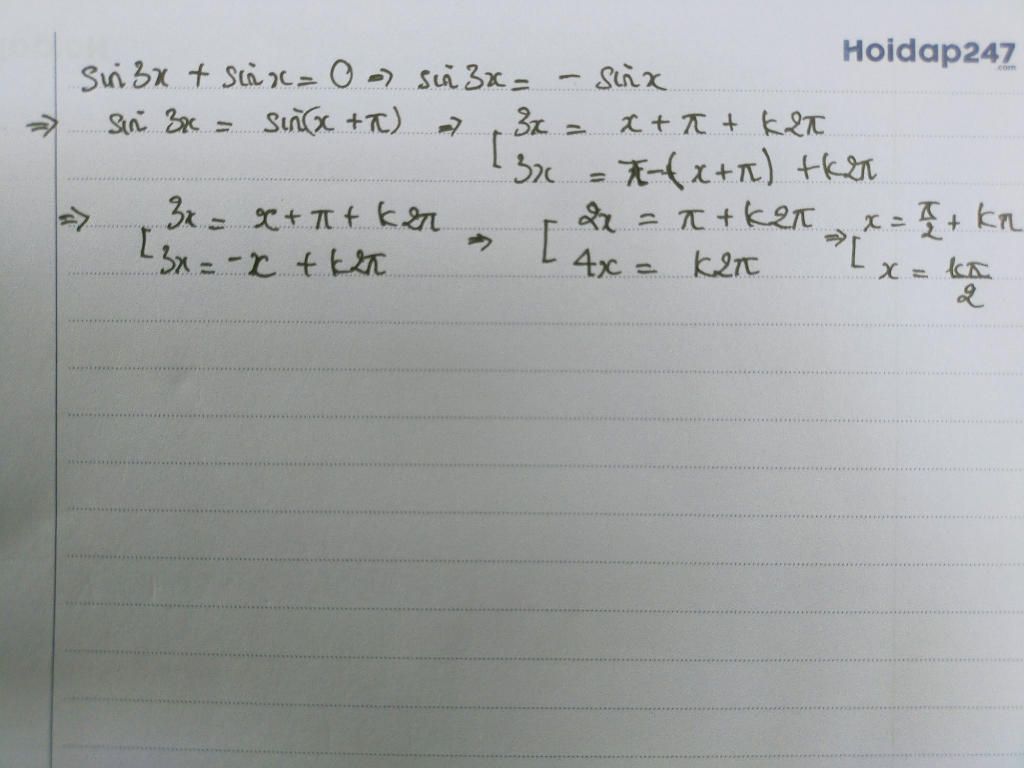 Hoidap247.com
sin3x + sinx = 0 => sin3x = - sinx
=> sin 3x = sin(x + π) => [ 3x = x + π + k2π
3x = π-(x+π) + k2π
=> [ 3x = x + π + k2π => [ 2x = π + k2π => [ x = π/2 + kπ
3x = -x + k2π 4x = k2π x = kπ/2